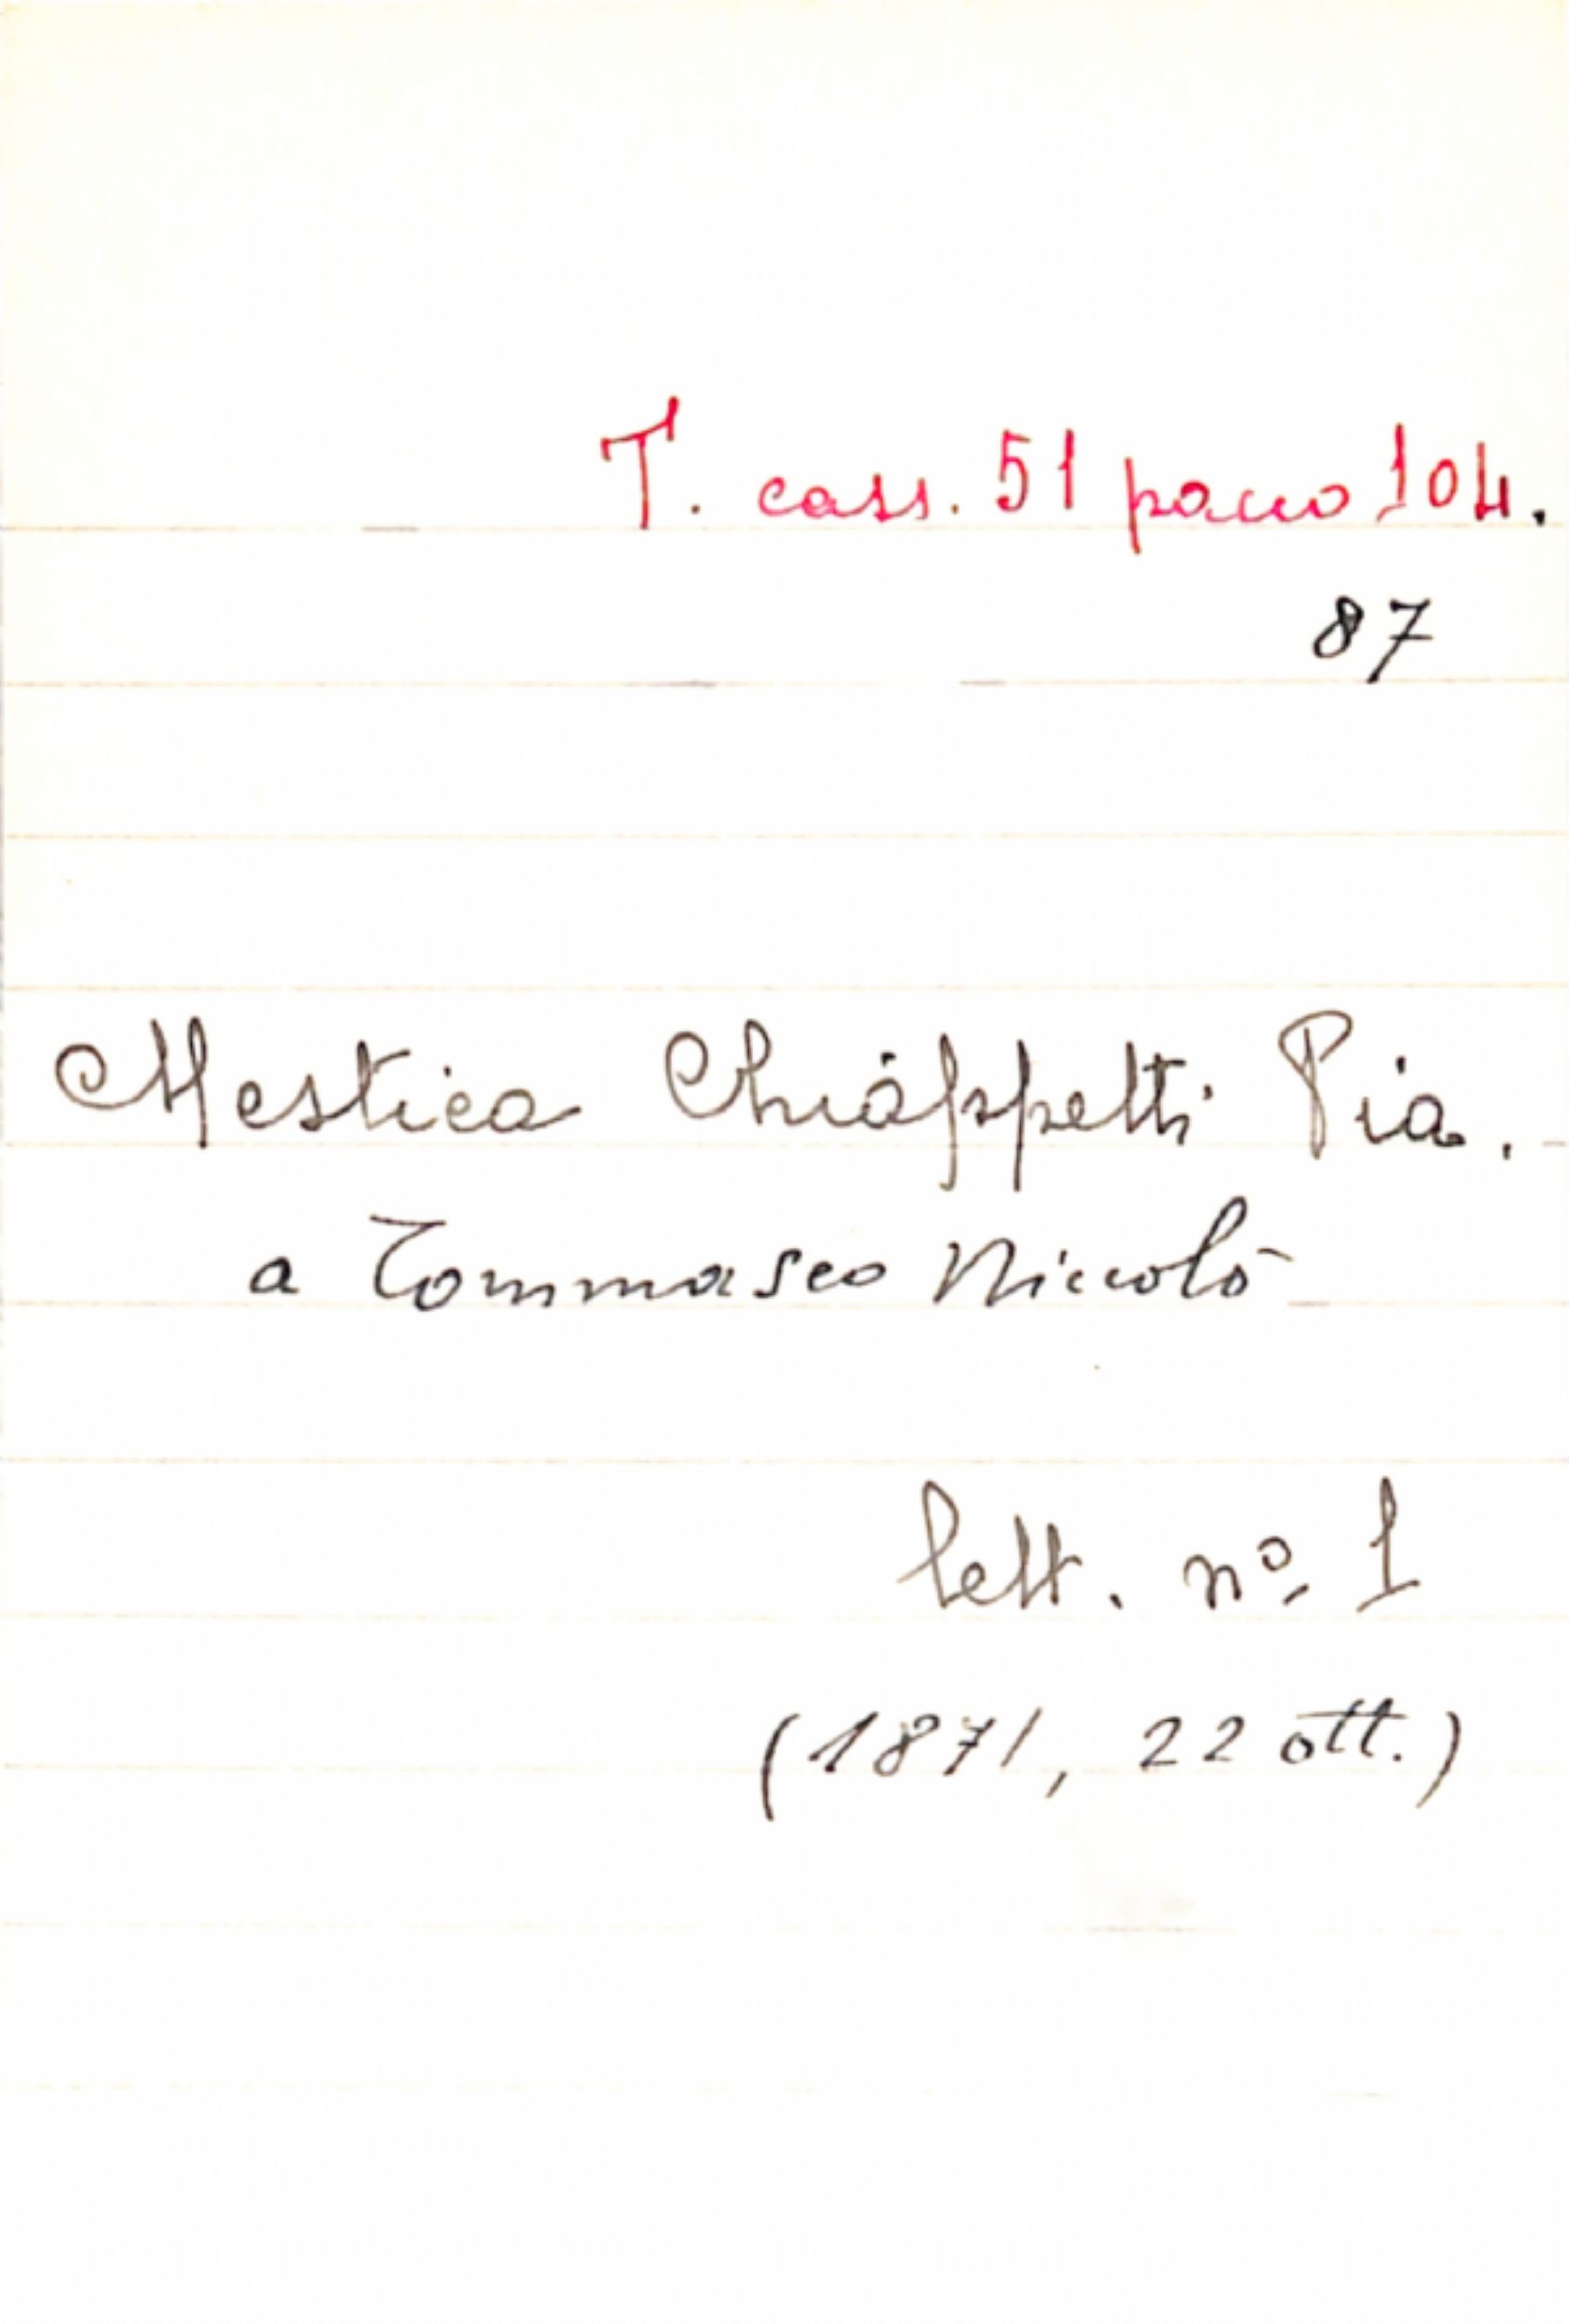 T. cass. 51 pacco 104.
87
Mestica Chiáppetti Pia.
a Tommaseo Niccolò
lett. nº 1
(1871, 22 ott.)